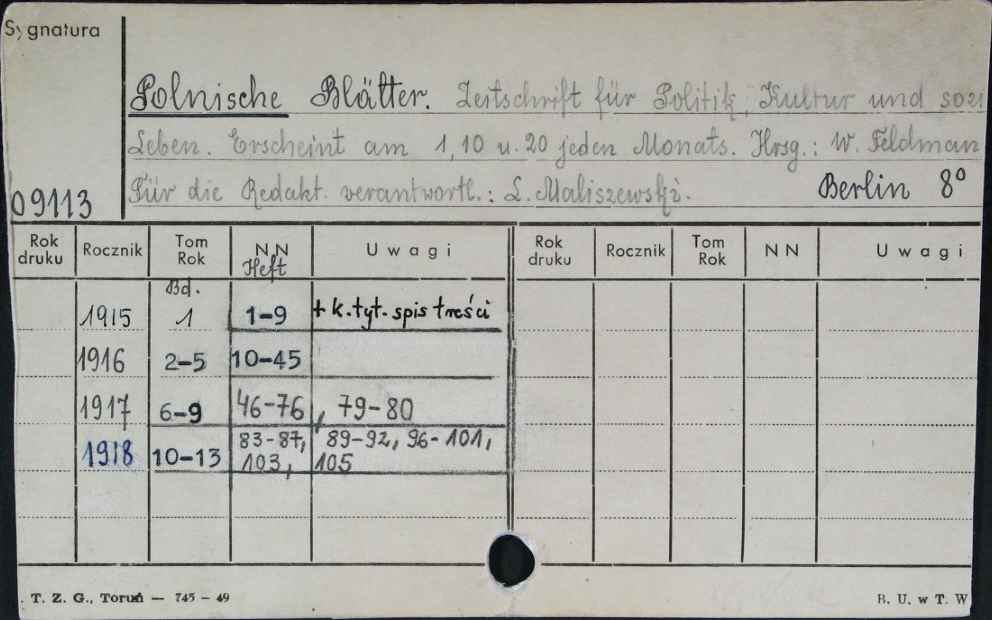 Sygnatura
Polnische Blätter. Zeitschrift für Politik, Kultur und sozi
Leben. Erscheint am 1, 10 u. 20 jeden Monats. Hrsg.: W. Feldman
Für die Redakt. verantwortl.: L. Maliszewski. Berlin 8°
09113
Rok druku Rocznik Tom Rok NN Heft Uwagi Rok druku Rocznik Tom Rok NN Uwagi
Bd.
1915 1 1-9 + k. tyt. spis treści
1916 2-5 10-45
1917 6-9 46-76, 79-80
1918 10-13 83-87, 89-92, 96-101,
103, 105
. T. Z. G., Toruń — 745 - 49 B. U. w T. W